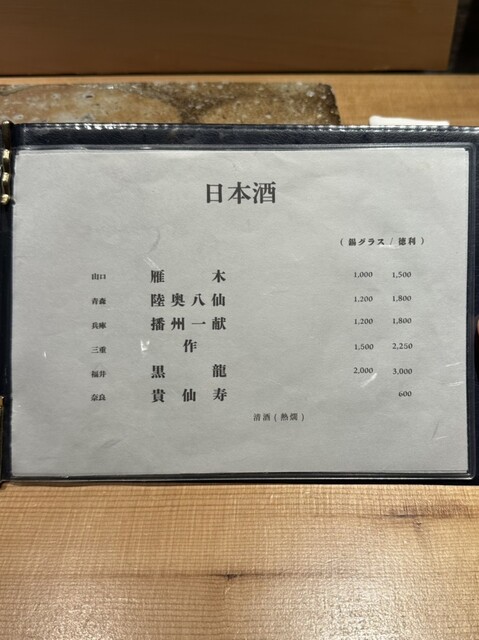 日本酒
(錫グラス / 徳利)
山口 雁木 1,000 1,500
青森 陸奥八仙 1,200 1,800
兵庫 播州一献 1,200 1,800
三重 作 1,500 2,250
福井 黒龍 2,000 3,000
奈良 貴仙寿 600
清酒(熱燗)